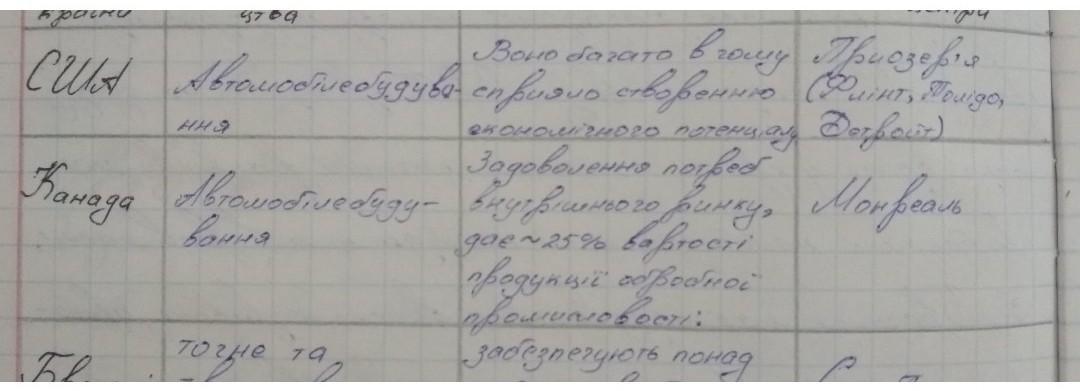 країни цтва центри
США Автомобілебудува- Воно багато в чому Приозер'я
ння сприяло створенню (Флінт, Толідо,
економічного потенціалу Детройт)
Канада Автомобілебуду- Задоволення потреб Монреаль
вання внутрішнього ринку,
дає ~25% вартості
продукції обробної
промисловості:
точне та забезпечують понад